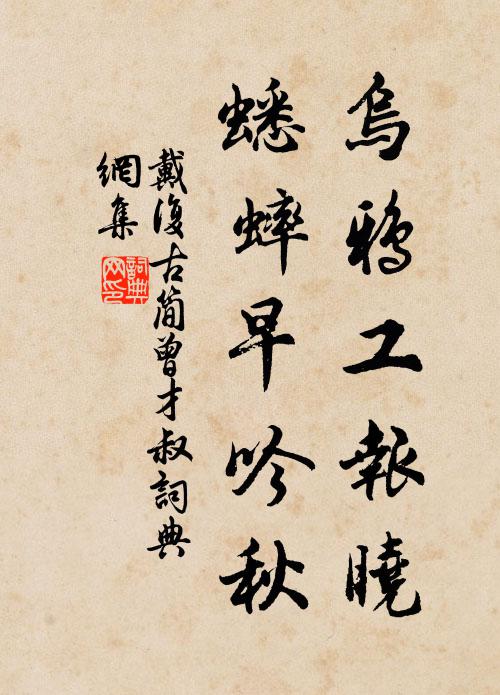 烏鴉工報曉
蟋蟀早吟秋
戴復古簡曾才叔詞典
網集
詞典網印